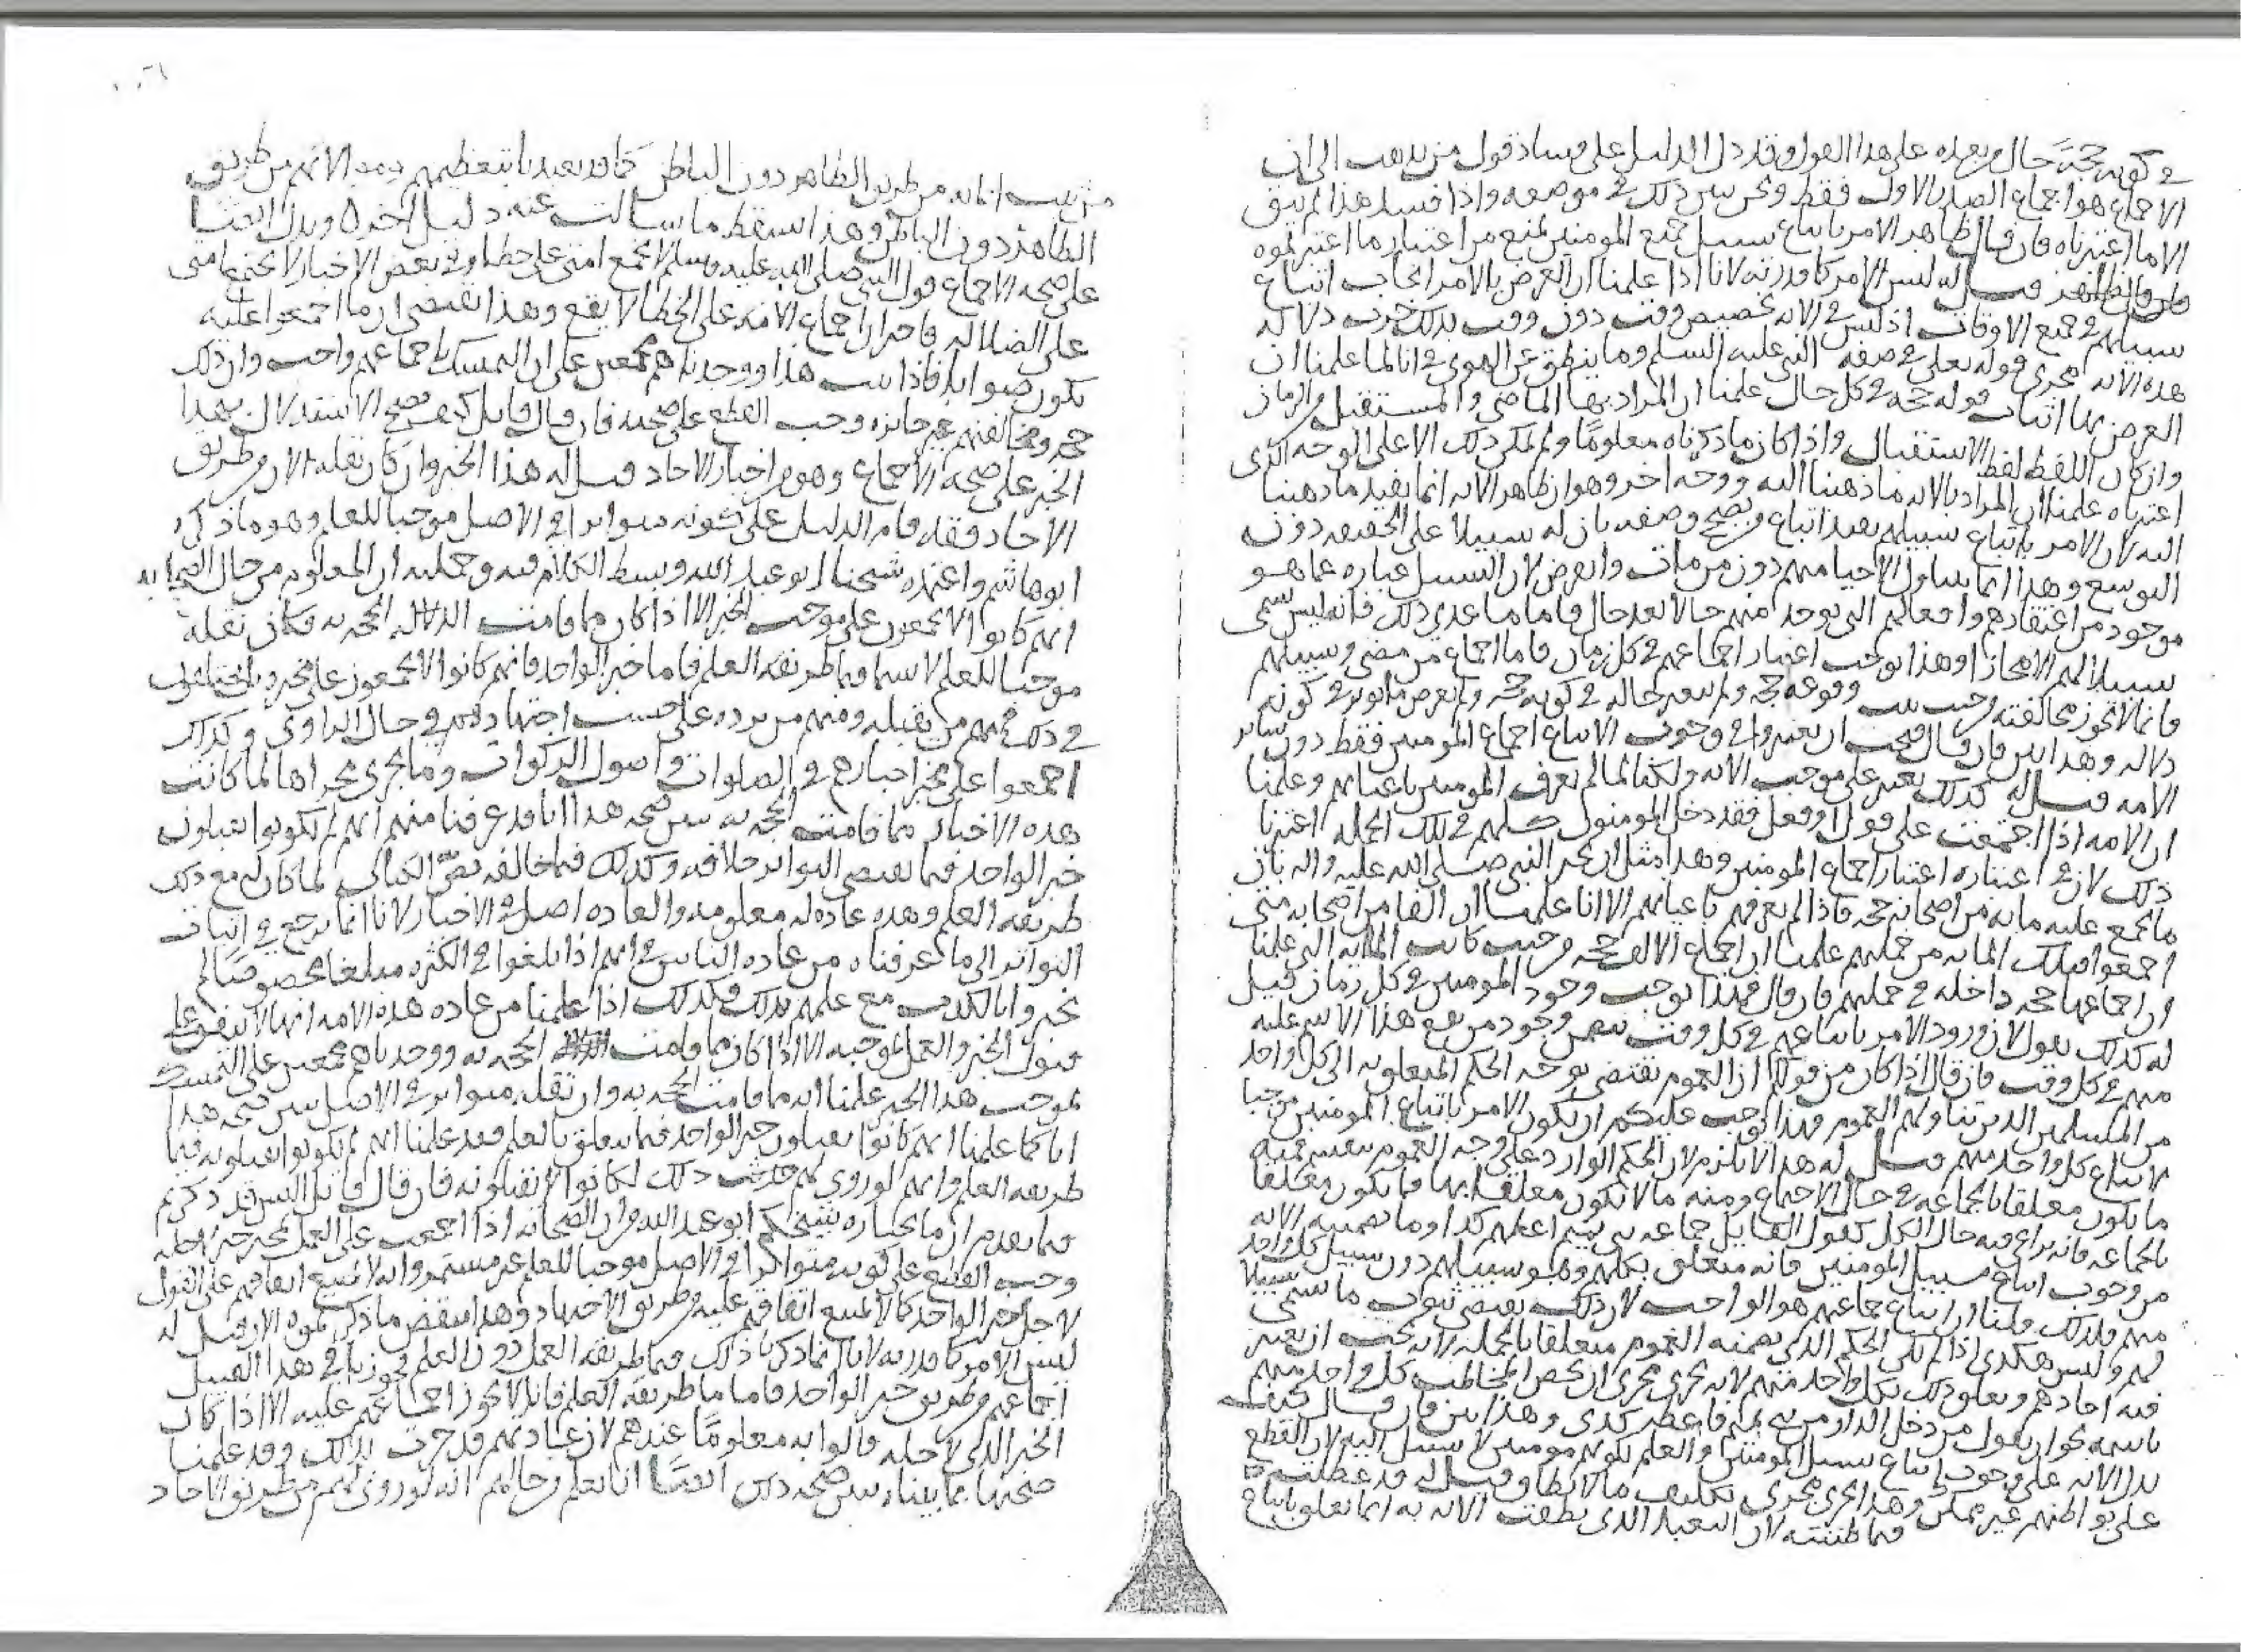 في كونه حجة حال وبعده على هذا القول وقد دل الدليل على فساد قول من يذهب الى ان
الاجماع هو اجماع الصدر الاول فقط ونحن نبين ذلك في موضعه واذا فسد هذا لم يبق
الا ما اعتبرناه فان قال ظاهر الامر باتباع سبيل جميع المومنين يمنع من اعتبار ما اعتبرتموه
قيل له ليس الامر كما قدرته لانا اذا علمنا ان الغرض بالامر ايجاب اتباع
سبيلهم في جميع الاوقات اذ ليس في الاية تخصيص وقت دون وقت بذلك جرت دلالة
هذه الاية مجرى قوله تعلى في صفة النبي عليه السلم وما ينطق عن الهوى في انا لما علمنا ان
الغرض بها اثبات قوله حجة في كل حال علمنا ان المراد بها الماضي والمستقبل والزمان
وان كان اللفظ لفظ الاستقبال واذا كان ما ذكرناه معلوما ولم يمكن ذلك الا على الوجه الذي
اعتبرناه علمنا ان المراد بالاية ما ذهبنا اليه ووجه اخر وهو ان ظاهر الاية انما يفيد ما ذهبنا
اليه لان الامر باتباع سبيلهم يفيد اتباع ويصح وصفه بان له سبيلا على الحقيقة دون
التوسع وهذا انما يتناول الاحيا منهم دون من مات وانقرض لان السبيل عبارة عما هو
موجود من اعتقادهم وافعالهم التي توجد منهم حالا بعد حال فاما ما عدى ذلك فانه ليس يسمى
سبيلا لهم الا مجازا وهذا يوجب اعتبار اجماعهم في كل زمان فاما اجماع من مضى وسبيلهم
فانما لا تجوز مخالفته من حيث ثبت وقوعه حجة ولم يتغير حاله في كونه حجة ولم يعرض ما يوثر في كونه
دلالة وهذا بين فان قال فيجب ان تعتبروا في وجوب الاتباع اجماع المومنين فقط دون ساير
الامة قيل له كذلك نعتبر على موجب الاية ولكنا لما لم نعرف المومنين باعيانهم وعلمنا
ان الامة اذا اجتمعت على قول او فعل فقد دخل المومنون كلهم في تلك الجملة اعتبرنا
ذلك لان في اعتباره اعتبار اجماع المومنين وهذا مثل ان يخبر النبي صلى الله عليه واله بان
ما يجمع عليه ماية من اصحابه حجة فاذا لم نعرفهم باعيانهم الا انا علمنا ان الفا من اصحابه متى
اجمعوا فتلك الماية من جملتهم علمنا ان اجماع الالف حجة من حيث كانت الماية التي علمنا
ان اجماعها حجة داخلة في جملتهم فان قال فهذا يوجب وجود المومنين في كل زمان قيل
له كذلك نقول لان ورود الامر باتباعهم في كل وقت يتضمن وجود من يقع هذا الاسم عليه
منهم في كل وقت فان قال اذا كان من قولكم ان العموم يقتضي توجه الحكم المتعلق به الى كل واحد
من المسلمين الذين تناولهم العموم فهذا يوجب عليكم ان يكون الامر باتباع المومنين موجبا
لاتباع كل واحد منهم قيل له هذا لا يلزم لان الحكم الوارد على وجه العموم ينقسم فمنه
ما يكون معلقا بالجماعة في حال الاجتماع ومنه ما لا يكون معلقا بها فما يكون معلقا
بالجماعة فانه يراعى فيه حال الكل كقول القايل جماعة بني تميم اعطهم كذا وما تضمنته الاية
من وجوب اتباع سبيل المومنين فانه متعلق بكلهم وهو سبيلهم دون سبيل كل واحد
منهم فلذلك قلنا ان اتباع جماعتهم هو الواجب لان ذلك يقتضي ثبوت ما يسمى سبيلا
لهم وليس هكذى اذا لم يكن الحكم الذي تضمنه العموم متعلقا بالجملة لانه يجب ان يعتبر
فيه احادهم ويعلق ذلك بكل واحد منهم لانه يجري مجرى ان يخص المخاطب كل واحد منهم
باسمه نحو ان يقول من دخل الدار من بني تميم فاعطه كذى وهذا بين فان قال كيف
يدل الاية على وجوب اتباع سبيل المومنين والعلم بكونهم مومنين لا سبيل اليه لان القطع
على بواطنهم غير ممكن وهذا يجري مجرى تكليف ما لا يطاق قيل له قد غلطت
فيما ظننته لان التعبد الذي نطقت الاية به انما تعلق باتباع
من ثبت ايمانه من طريق الظاهر دون الباطن كما قد تعبدنا بتعظيمهم من طريق
الظاهر دون الباطن وهذا يسقط ما سالت عنه دليل اخر ويدل ايضا
على صحة الاجماع قول النبي صلى الله عليه وسلم لا تجمع امتي على خطا وفي بعض الاخبار لا تجتمع امتي
على الضلالة فاخبر ان اجماع الامة على الخطا لا يقع وهذا يقتضي ان ما اجمعوا عليه
يكون صوابا فاذا ثبت هذا ووجدناهم مجمعين على ان التمسك باجماعهم واجب وان ذلك
حجة ومخالفتهم غير جايزة وجب القطع على صحته فان قال قايل كيف يصح الاستدلال بهذا
الخبر على صحة الاجماع وهو من اخبار الاحاد قيل له هذا الخبر وان كان نقله الان من طريق
الاحاد فقد قام الدليل على كونه متواترا في الاصل موجبا للعلم وهو ما ذكره
ابو هاشم واعتمده شيخنا ابو عبد الله وبسط الكلام فيه وجملته ان المعلوم من حال الصحابة
انهم كانوا لا يجمعون على موجب الخبر الا اذا كان مما قامت الحجة به فكان نقله
موجبا للعلم لا سيما فيما طريقه العلم فاما خبر الواحد فانهم كانوا لا يجمعون على مخبره بل يختلفون
في ذلك فمنهم من يقبله ومنهم من يرده على حسب اجتهادهم في حال الراوي وكذلك
اجمعوا على مخبر اخبارهم في الصلوات واصول الزكوات وما يجري مجراها لما كانت
هذه الاخبار مما قامت الحجة به يبين صحة هذا انا قد عرفنا منهم انهم لم يكونوا يقبلون
خبر الواحد فيما يقتضي التواتر خلافه وكذلك فيما خالفه نص الكتاب لما كان له مع ذلك
طريقه العلم وهذه عادة له معلومة والعادة اصل في الاخبار لانا انما نرجع في اثبات
التواتر الى ما عرفناه من عادة الناس في انهم اذا بلغوا في الكثرة مبلغا مخصوصا لم
يخبروا بالكذب مع علمهم بذلك فكذلك اذا علمنا من عادة هذه الامة انها لا تتفق على
قبول الخبر والعمل بموجبه الا اذا كان مما قامت الحجة به ووجدناهم مجمعين على التمسك
بموجب هذا الخبر علمنا انه مما قامت الحجة به وان نقله متواتر في الاصل يبين صحة هذا
انا كما علمنا انهم كانوا يقبلون خبر الواحد فيما يتعلق بالعلم فقد علمنا انهم لم يكونوا يقبلونه فيما
طريقه العلم وانهم لو روي لهم حديث ذلك لكانوا لا يقبلونه فان قال قايل اليس قد ذكرتم
فيما تقدم ان ما يختاره شيخكم ابو عبد الله من ان الصحابة اذا اجمعت على العمل بمخبر خبر
وجب القطع على كونه متواترا في الاصل موجبا للعلم غير مستمر وانه لا يمتنع اتفاقهم على القول
لاجل خبر الواحد كما لا يمتنع اتفاقهم عليه من طريق الاجتهاد وهذا ينقض ما ذكرتموه الان قيل له
ليس الامر كما قدرته لانا انما ذكرنا ذلك فيما طريقه العمل دون العلم فجوزنا في هذا القبيل
اجماعهم من طريق خبر الواحد فاما ما طريقه العلم فانه لا يجوز اجماعهم عليه الا اذا كان
الخبر الذي لاجله قالوا به معلوما عندهم لان عادتهم قد جرت بذلك وقد علمنا
صحتها بما بيناه يبين صحة ذلك ايضا انا نعلم من حالهم انه لو روي لهم من طريق الاحاد